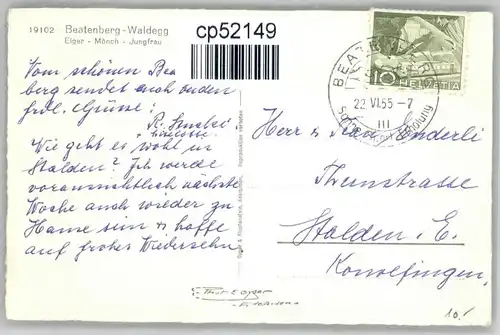 19102 Beatenberg - Waldegg
Eiger - Mönch - Jungfrau
cp52149
HELVETIA
10
22.VI.55-7
III
Vom schönen Bea
berg sendet auch
frdl. Grüsse:
R.
Wie geht es wohl in
Stalden? Ich werde
voraussichtlich nächste
Woche auch wieder zu
Hause sein & hoffe
auf frohes Wiedersehn
Herr & Frau Enderli
Thunstrasse
Stalden i. E.
Konolfingen
10.-